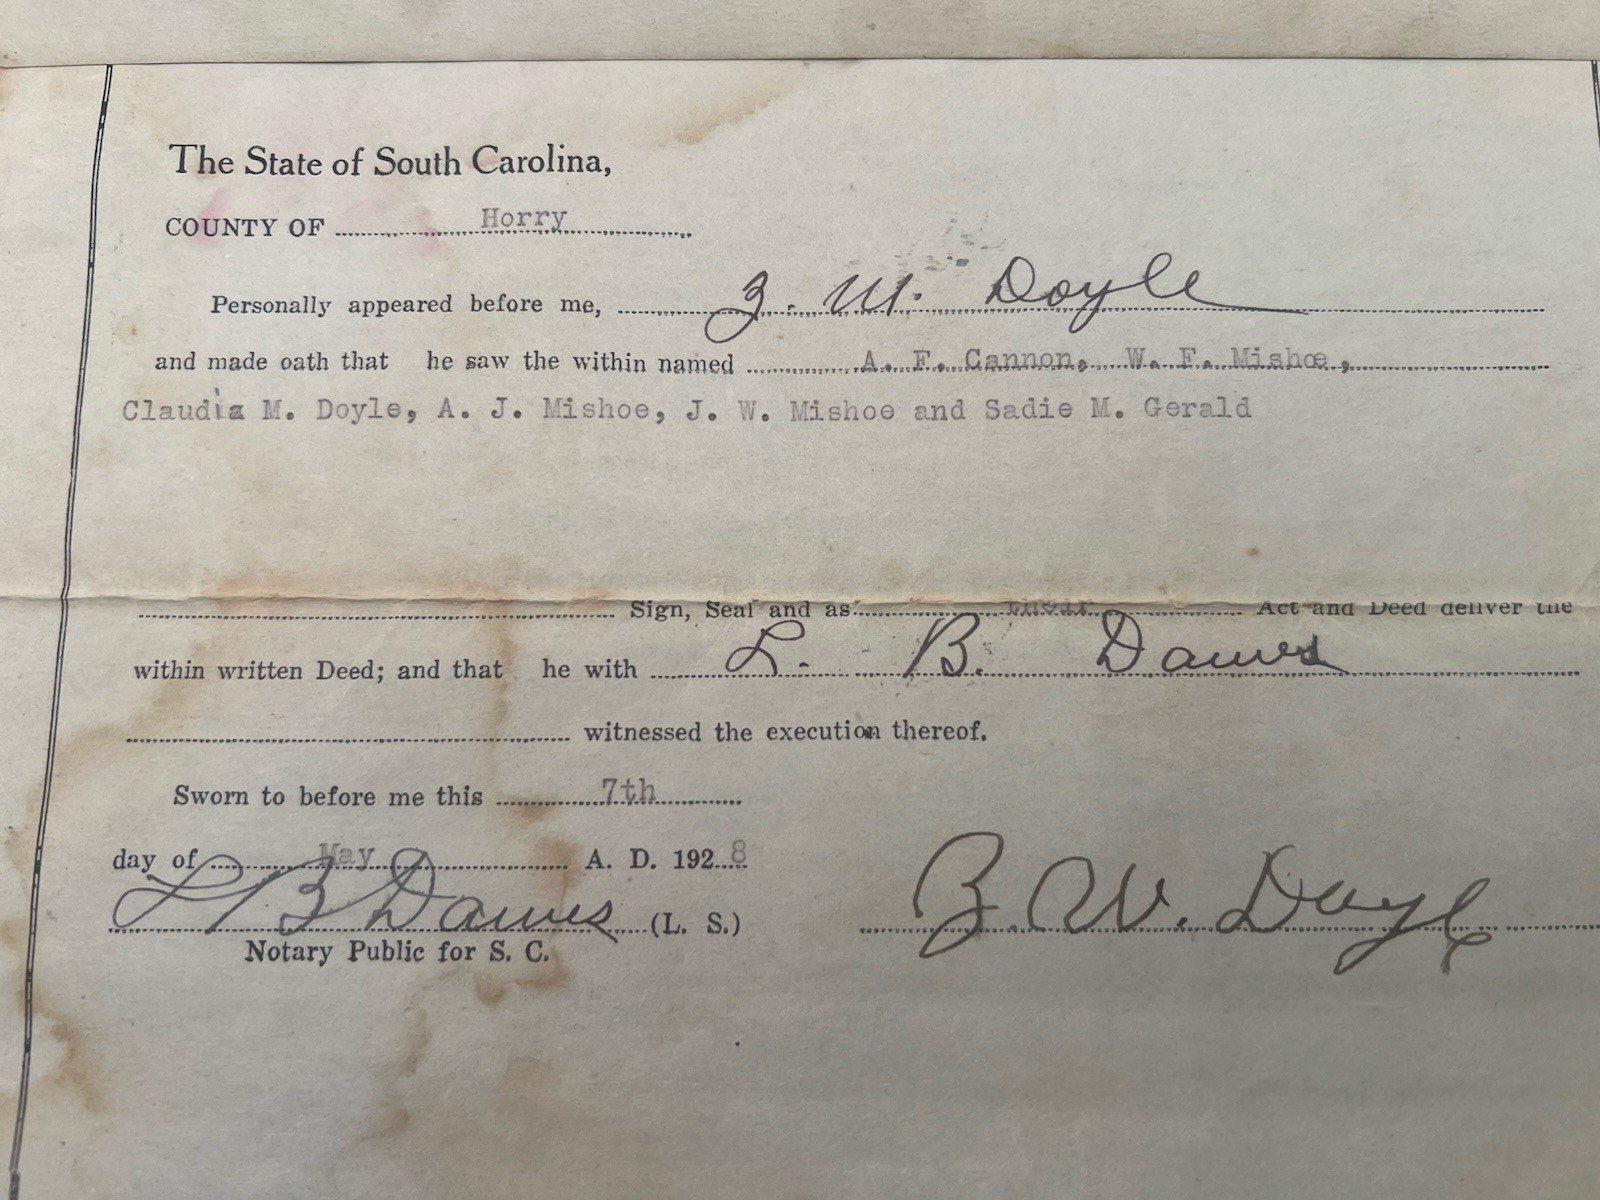 The State of South Carolina,
COUNTY OF Horry
Personally appeared before me, Z. W. Doyle
and made oath that he saw the within named A. F. Cannon, W. F. Mishoe,
Claudia M. Doyle, A. J. Mishoe, J. W. Mishoe and Sadie M. Gerald
Sign, Seal and as their Act and Deed deliver the
within written Deed; and that he with L. B. Dawes
witnessed the execution thereof.
Sworn to before me this 7th
day of May A. D. 1928
L B Dawes (L. S.) Z. W. Doyle
Notary Public for S. C.